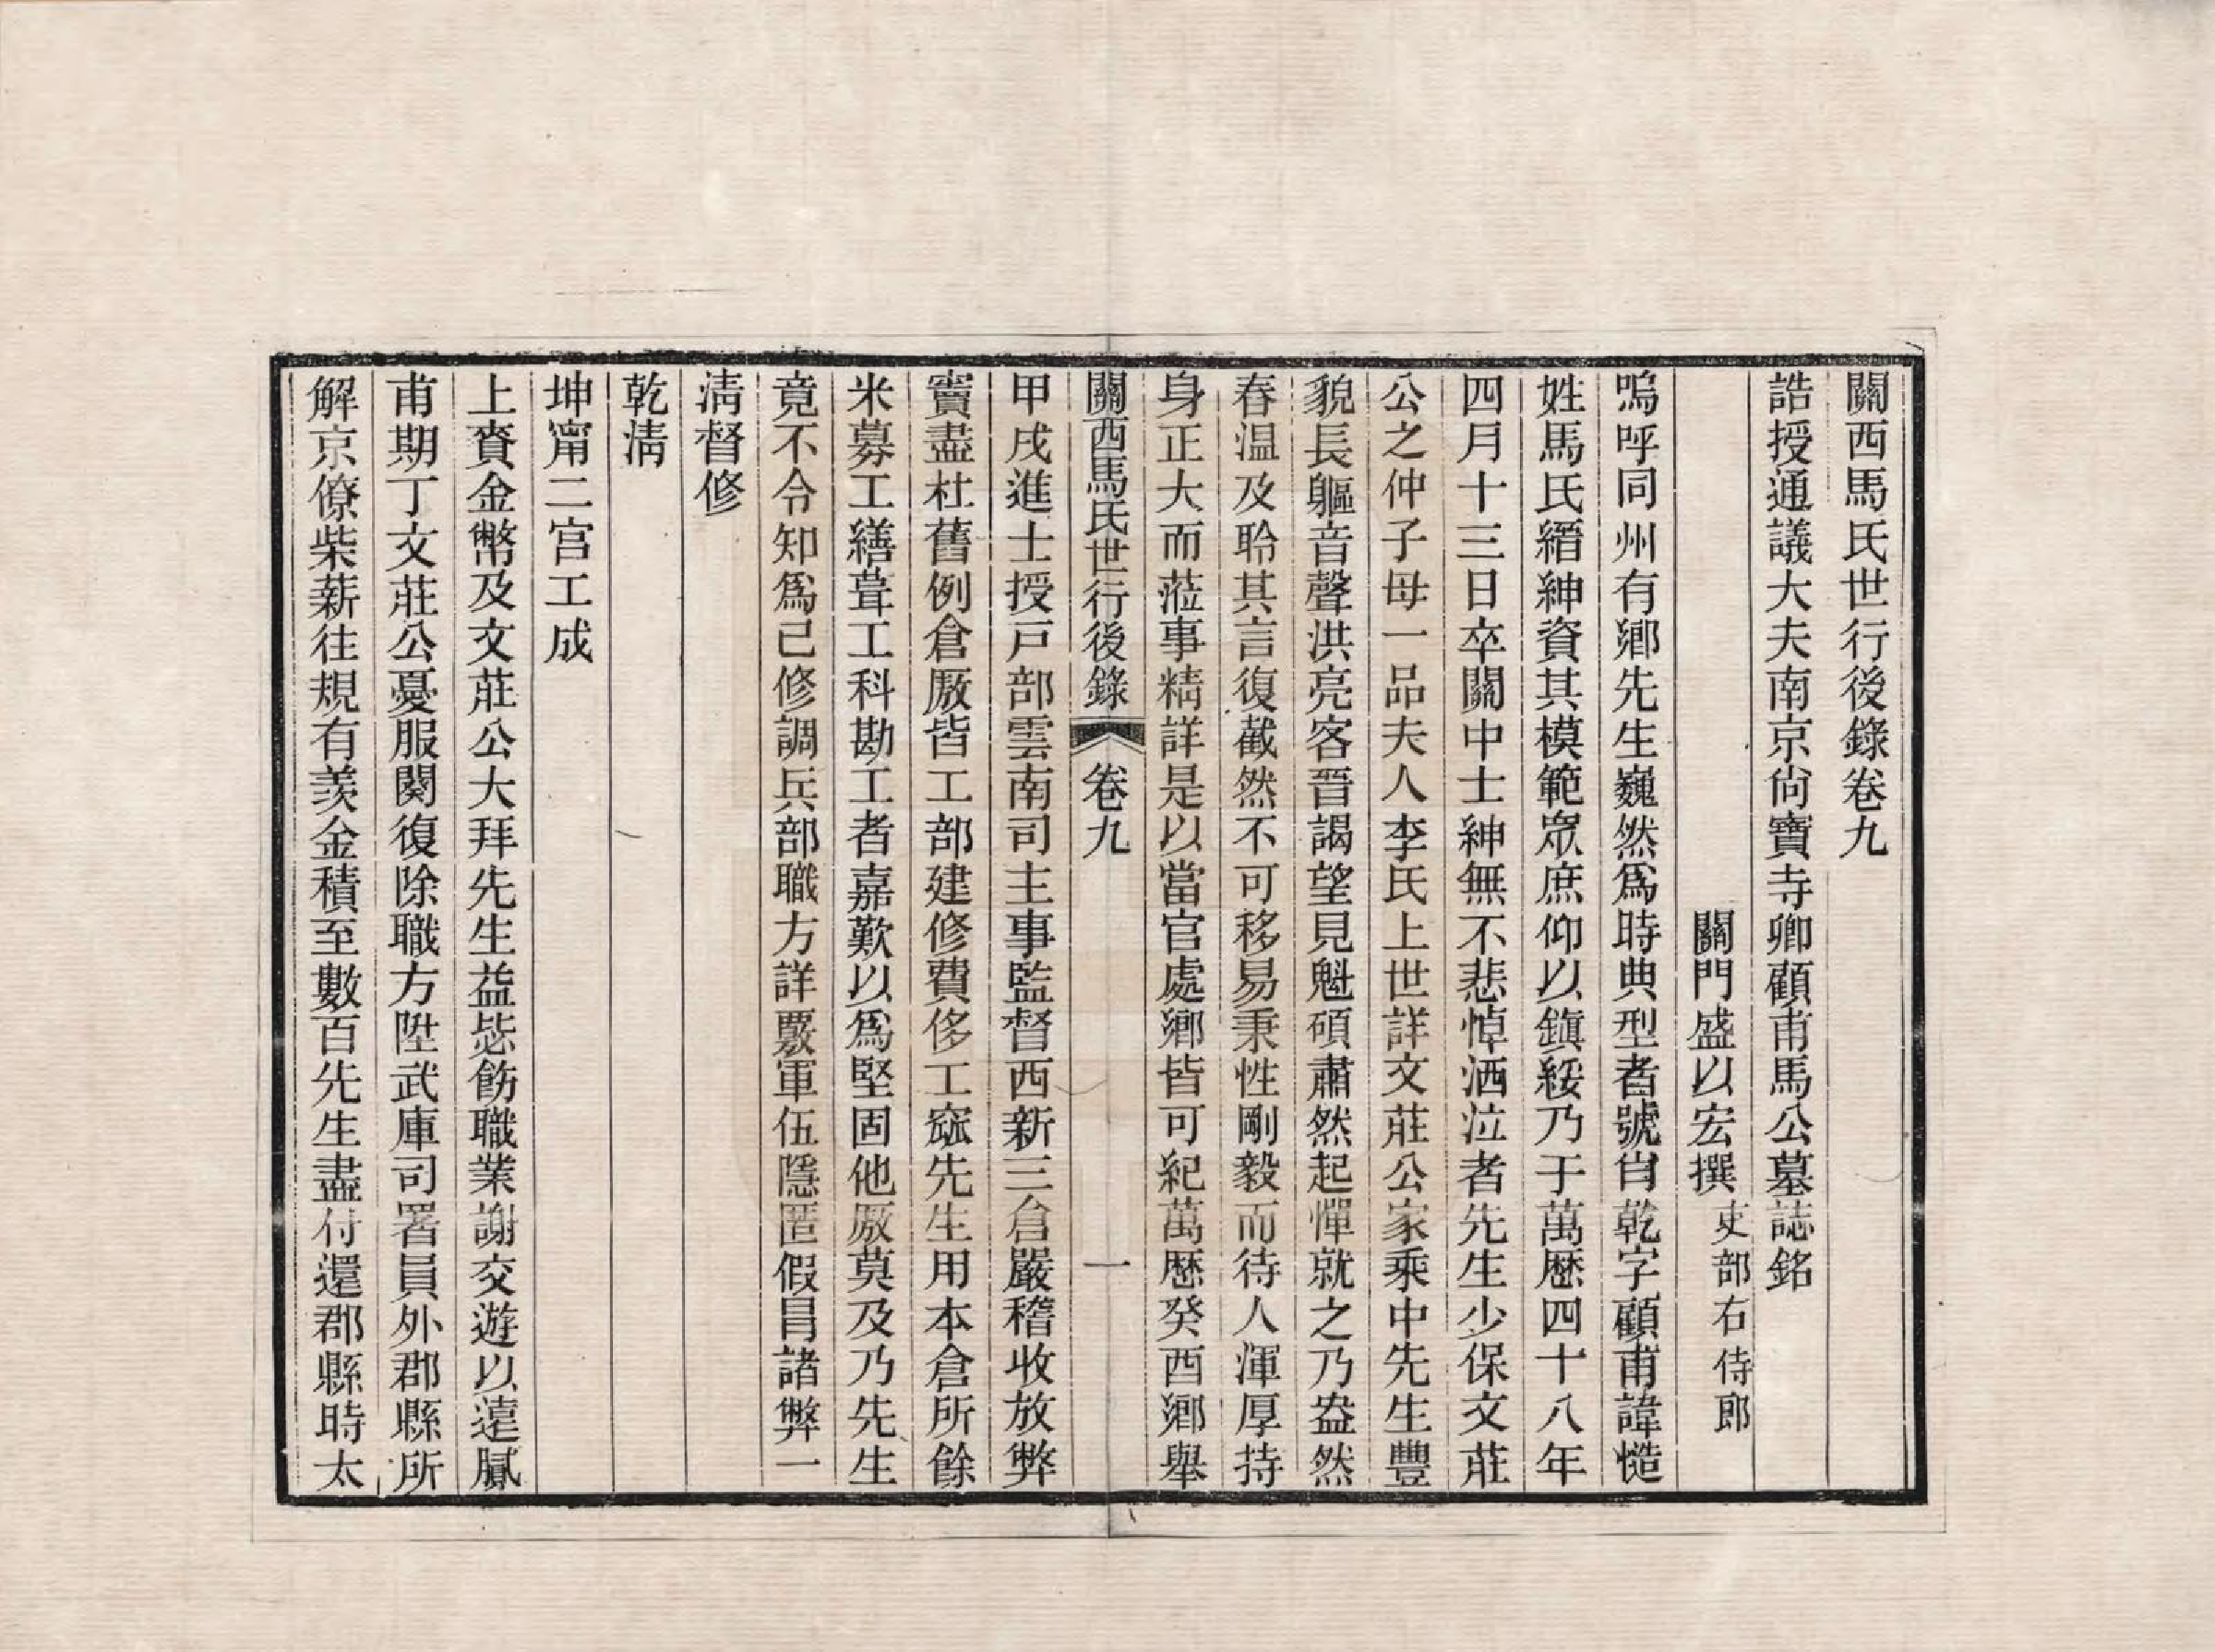 關西馬氏世行後錄卷九
誥授通議大夫南京尙寶寺卿顧甫馬公墓誌銘
關門盛以宏撰吏部右侍郎
嗚呼同州有鄉先生巍然爲時典型者號自乾字顧甫諱慥
姓馬氏縉紳資其模範眾庶仰以鎭綏乃于萬歷四十八年
四月十三日卒關中士紳無不悲悼洒泣者先生少保文莊
公之仲子母一品夫人李氏上世詳文莊公家乘中先生豐
貌長軀音聲洪亮客晋謁望見魁碩肅然起憚就之乃盎然
春温及聆其言復截然不可移易秉性剛毅而待人渾厚持
身正大而蒞事精詳是以當官處鄉皆可紀萬歷癸酉鄉舉
關西馬氏世行後錄 卷九 一
甲戌進士授戸部雲南司主事監督西新三倉嚴稽收放弊
竇盡杜舊例倉厫皆工部建修費侈工窳先生用本倉所餘
米募工繕葺工科勘工者嘉歎以爲堅固他厫莫及乃先生
竟不令知爲己修調兵部職方詳覈軍伍隱匿假冒諸弊一
淸督修
乾淸
坤甯二宮工成
上賚金幣及文莊公大拜先生益毖飭職業謝交遊以遠膩
甫期丁文莊公憂服闋復除職方陞武庫司署員外郡縣所
解京僚柴薪往規有羨金積至數百先生盡付還郡縣時太